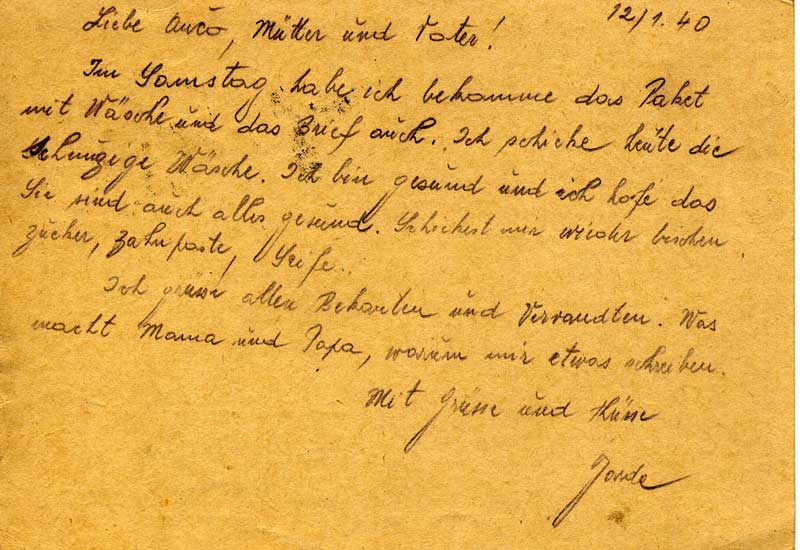 12/1.40
Liebe Ančo, Mütter und Vater!
Im Samstag habe ich bekomme das Paket
mit Wäsche und das Brief auch. Ich schicke heute die
schmuzige Wäsche. Ich bin gesund und ich hofe das
Sie sind auch alles gesund. Schickest mir wieder bischen
zucker, zahnpaste, Seife.
Ich grüsse allen Bekanten und Vervandten. Was
macht Mama und Papa, warum mir etwas schreiben.
Mit Grüsse und Küsse